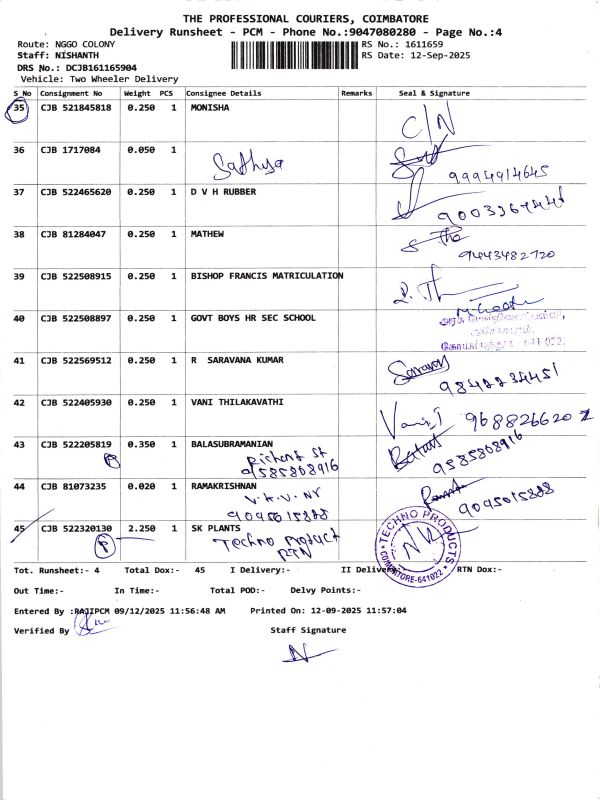 THE PROFESSIONAL COURIERS, COIMBATORE
Delivery Runsheet - PCM - Phone No.:9047080280 - Page No.:4
Route: NGGO COLONY RS No.: 1611659
Staff: NISHANTH RS Date: 12-Sep-2025
DRS No.: DCJB161165904
Vehicle: Two Wheeler Delivery
S_No Consignment No Weight PCS Consignee Details Remarks Seal & Signature
35 CJB 521845818 0.250 1 MONISHA
C/N
36 CJB 1717084 0.050 1
Sathya
9994914645
37 CJB 522465620 0.250 1 D V H RUBBER
38 CJB 81284047 0.250 1 MATHEW
9443482720
39 CJB 522508915 0.250 1 BISHOP FRANCIS MATRICULATION
40 CJB 522508897 0.250 1 GOVT BOYS HR SEC SCHOOL
41 CJB 522569512 0.250 1 R SARAVANA KUMAR
Saravan
9842234451
42 CJB 522405930 0.250 1 VANI THILAKAVATHI
9688266207
43 CJB 522205819 0.350 1 BALASUBRAMANIAN
Richard St
9585808916
9585808916
44 CJB 81073235 0.020 1 RAMAKRISHNAN
V.K.V. NR
9095015888
9095015888
45 CJB 522320130 2.250 1 SK PLANTS
P
Techno Product
RTN
TECHNO PRODUCTS
COIMBATORE-641022
Tot. Runsheet:- 4 Total Dox:- 45 I Delivery:- II Delivery:- RTN Dox:-
Out Time:- In Time:- Total POD:- Delvy Points:-
Entered By :RAJIPCM 09/12/2025 11:56:48 AM Printed On: 12-09-2025 11:57:04
Verified By Staff Signature